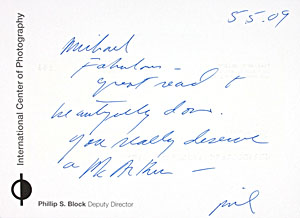 5.5.09
Michael
Fabulous –
great read &
beautifully done.
You really deserve
a McArthur –
Phil
International Center of Photography
Phillip S. Block Deputy Director